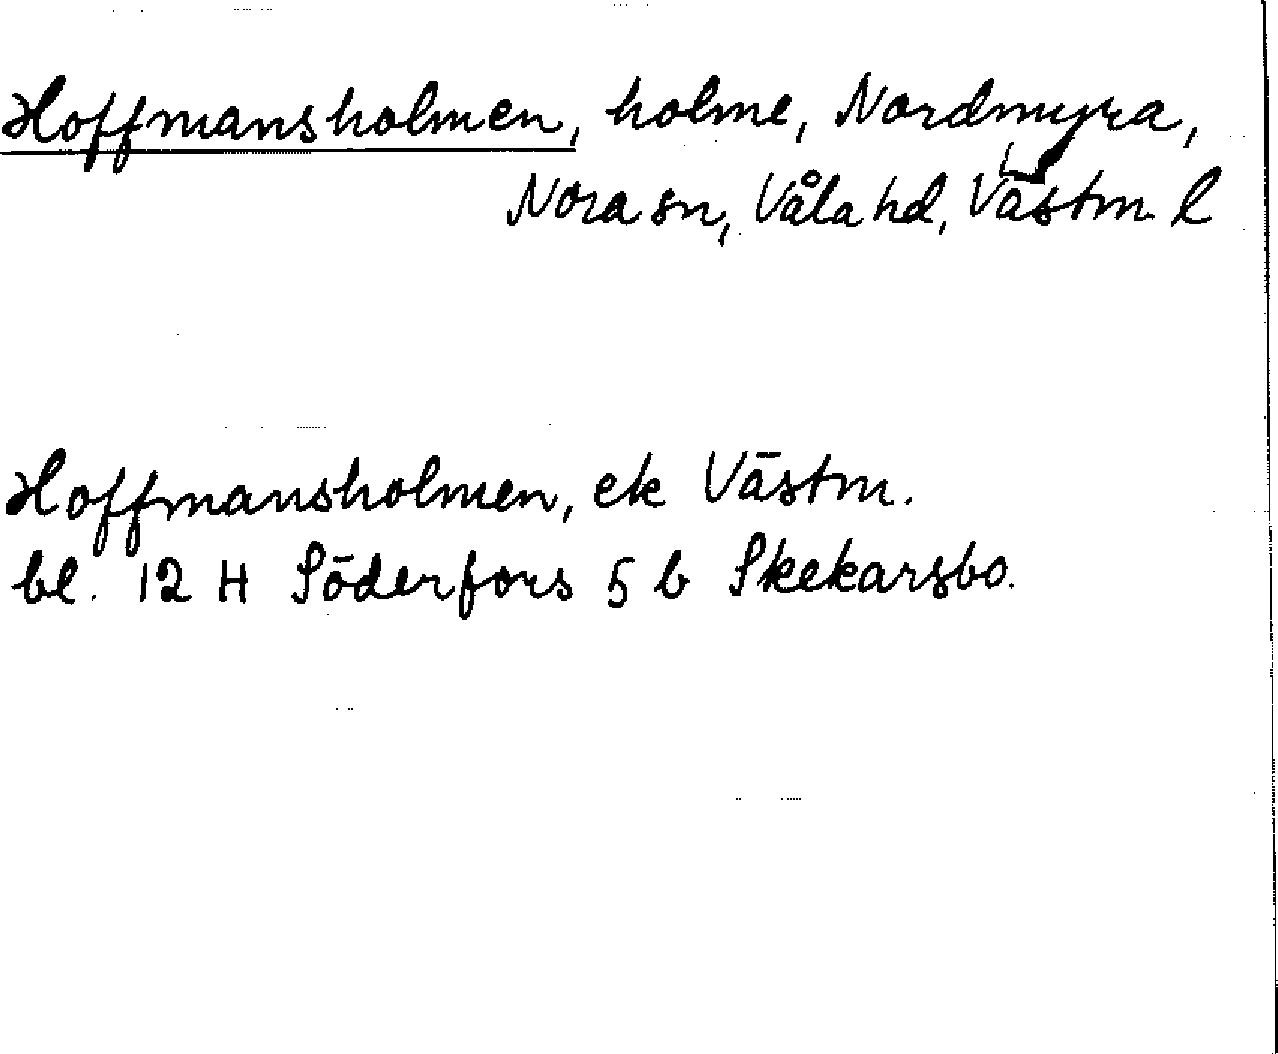 Hoffmansholmen, holme, Nordmyra,
Nora sn, Våla hd, Västm. l
Hoffmansholmen, ek Västm.
bl. 12 H Söderfors 5 b Skekarsbo.